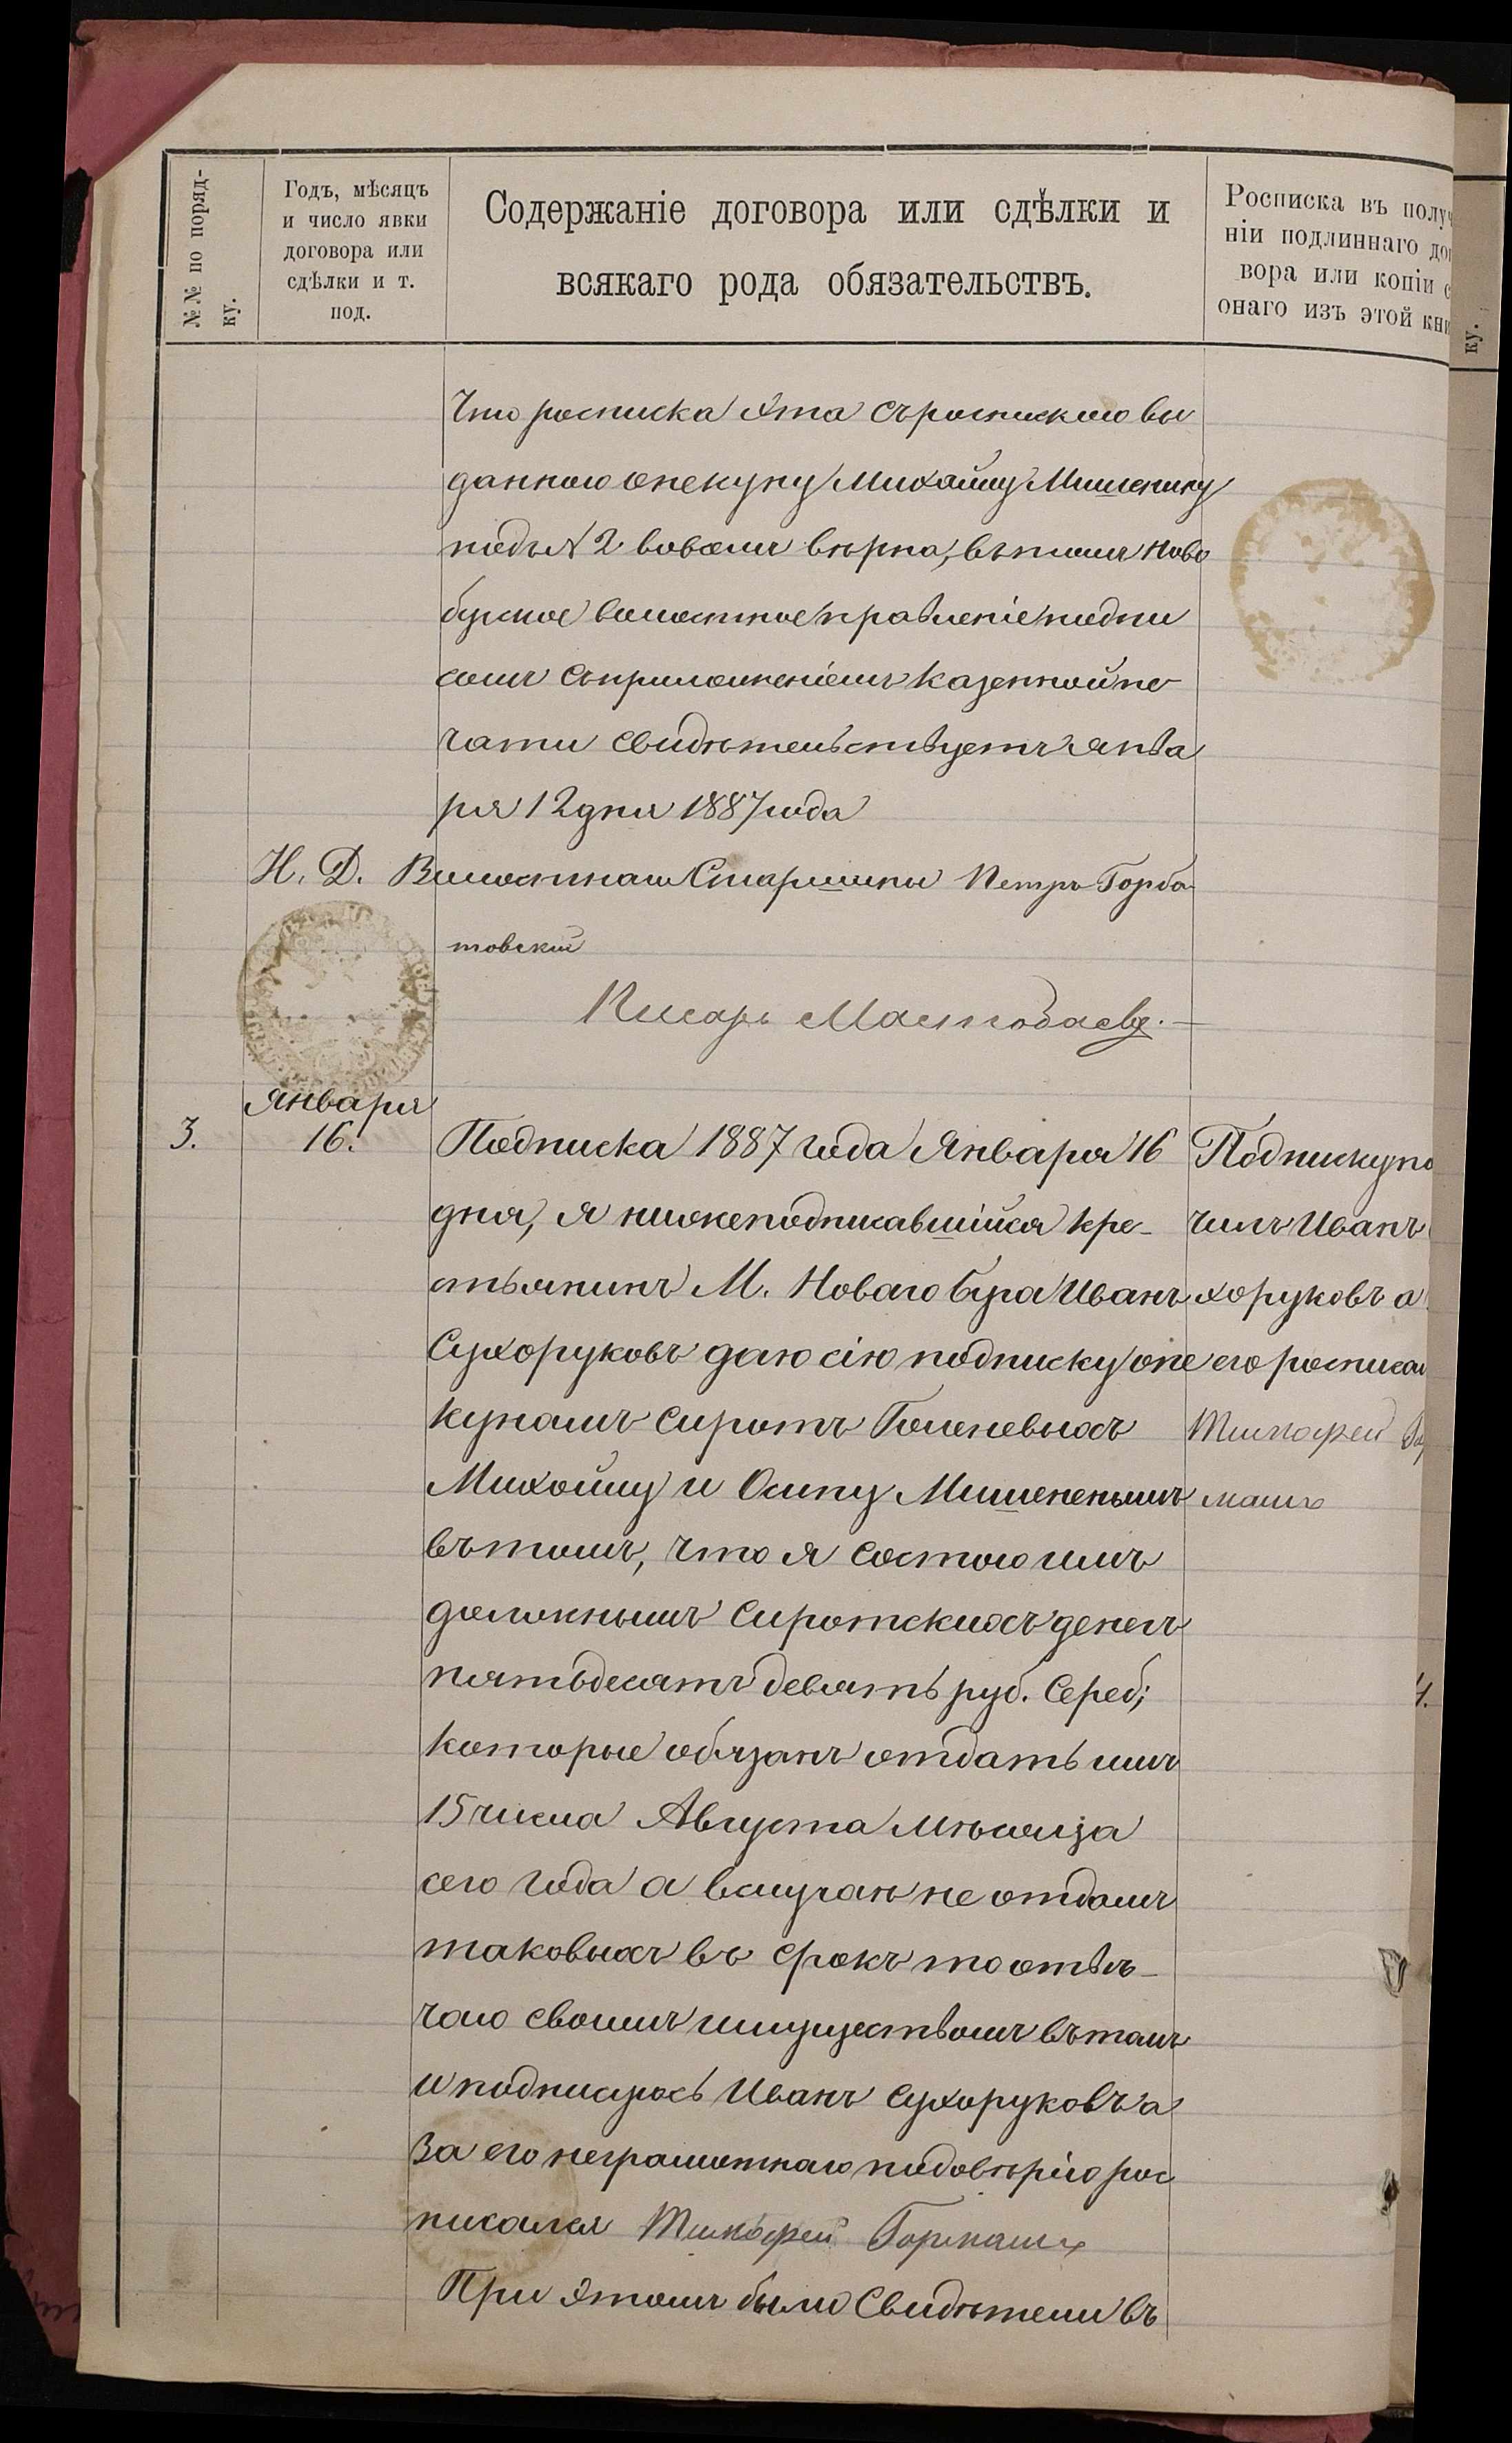 №№ по поряд-
ку.
Годъ, мѣсяцъ
и число явки
договора или
сдѣлки и т.
под.
Содержаніе договора или сдѣлки и
всякаго рода обязательствъ.
Росписка въ получ
ніи подлиннаго дог
вора или копіи с
онаго изъ этой кни
ку.
Что росписка эта съ роспискою вы
данною опекуну Михайлу Мишенину
подъ № 2 во всемъ вѣрна, въ томъ Ново
бугское волостное правленіе подпи
сомъ съ приложеніемъ казенной пе-
чати свидѣтельствуетъ Янва
ря 12 дня 1887 года
Н. Д. Волостнаго Старшины Петръ Горба
товскій
Писарь
3.
Января
16.
Подписка 1887 года Января 16
дня, я нижеподписавшійся кре-
стьянинъ М. Новаго Буга Иванъ
Сухоруковъ даю сію подписку опе
кунамъ сиротъ
Михайлу и Осипу Мишененымъ
въ томъ, что я состою имъ
должнымъ сиротскихъ денегъ
пятьдесятъ девять руб. Сереб;
которые обязанъ отдать имъ
15 числа Августа мѣсяца
сего года а вслучаѣ не отдамъ
таковыхъ въ срокъ то отвѣ-
чаю своимъ имуществомъ въ томъ
и подписуюсь Иванъ Сухоруковъ а
за его неграмотнаго по довѣрію рос
писался Тимофей
При этомъ были Свидѣтели въ
Подписку по
чилъ Иванъ
хоруковъ а
его росписал
Тимофей
4.